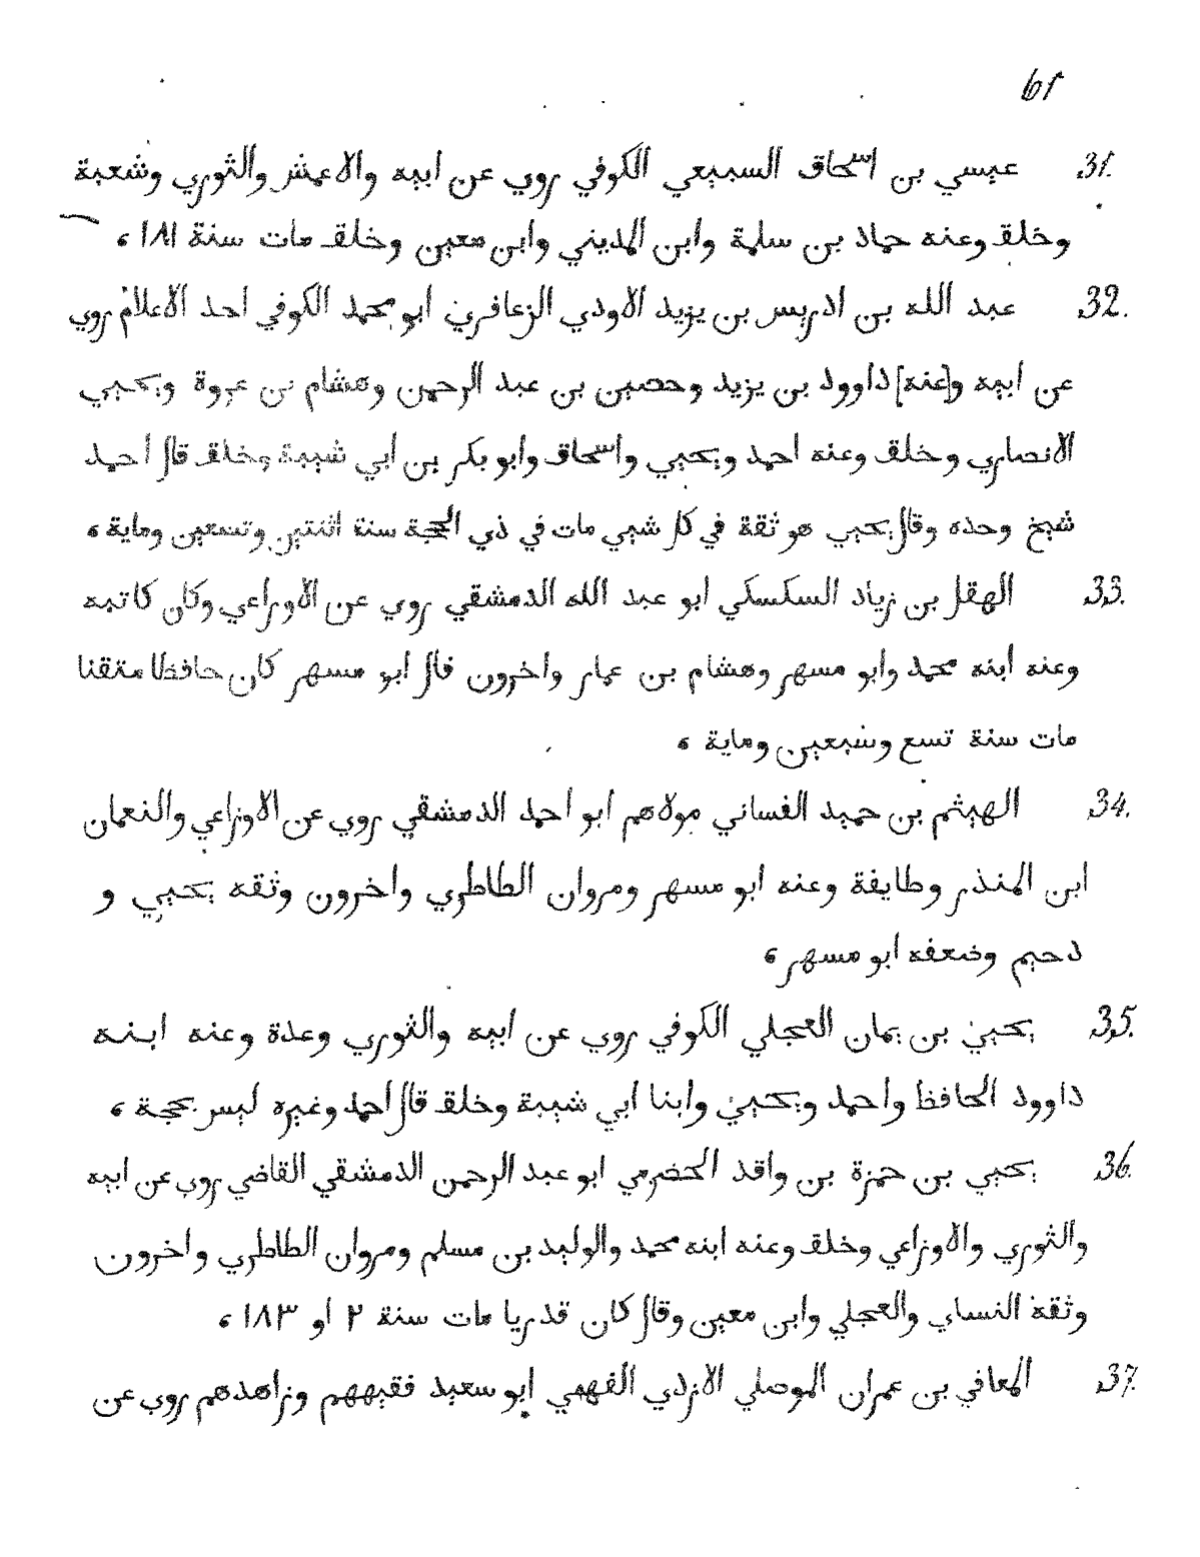 61
31. عيسي بن اسحاق السبيعي الكوفي روي عن ابيه والاعمش والثوري وشعبة
وخلق وعنه حماد بن سلمة وابن المديني وابن معين وخلق مات سنة ١٨١،
32. عبد الله بن ادريس بن يزيد الاودي الزعافري ابو محمد الكوفي احد الاعلام روي
عن ابيه و[عنه] داوود بن يزيد وحصين بن عبد الرحمن وهشام بن عروة ويحيي
الانصاري وخلق وعنه احمد ويحيي واسحاق وابو بكر بن ابي شيبة وخلق قال احمد
شيخ وحده وقال يحيي هو ثقة في كل شيي مات في ذي الحجة سنة اثنتين وتسعين وماية،
33. الهقل بن زياد السكسكي ابو عبد الله الدمشقي روي عن الاوزاعي وكان كاتبه
وعنه ابنه محمد وابو مسهر وهشام بن عمار واخرون قال ابو مسهر كان حافظا متقنا
مات سنة تسع وسبعين وماية،
34. الهيثم بن حميد الغساني مولاهم ابو احمد الدمشقي روي عن الاوزاعي والنعمان
ابن المنذر وطايفة وعنه ابو مسهر ومروان الطاطري واخرون وثقه يحيي و
دحيم وضعفه ابو مسهر،
35. يحيي بن يمان العجلي الكوفي روي عن ابيه والثوري وعدة وعنه ابنه
داوود الحافظ واحمد ويحيي وابنا ابي شيبة وخلق قال احمد وغيره ليس بحجة،
36. يحيي بن حمزة بن واقد الحضرمي ابو عبد الرحمن الدمشقي القاضي روي عن ابيه
والثوري والاوزاعي وخلق وعنه ابنه محمد والوليد بن مسلم ومروان الطاطري واخرون
وثقة النساي والعجلي وابن معين وقال كان قدريا مات سنة ٢ او ١٨٣،
37. المعافي بن عمران الموصلي الازدي الفهمي ابو سعيد فقيههم وزاهدهم روي عن